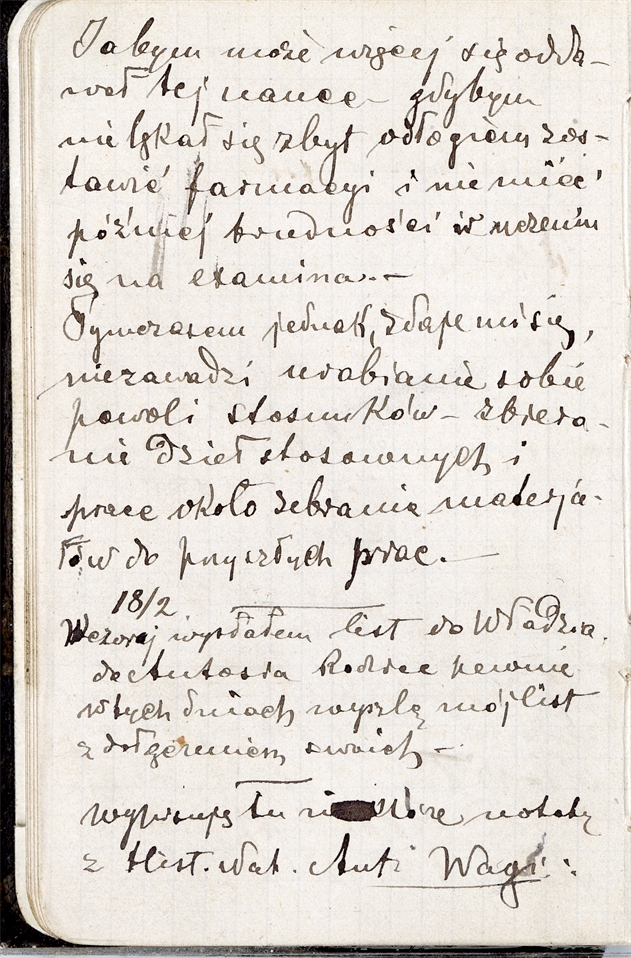 Jabym może więcej się odda-
wał tej nauce – gdybym
nie lękał się zbyt odłogiem zos-
tawić farmacyi i nie mieć
później trudności w uczeniu
się na examina. –
Tymczasem jednak, zdaje mi się,
niezawadzi urabianie sobie
powoli stosunków – zbiera-
nie dzieł stosownych i
prace około zebrania materja-
łów do przyszłych prac. –
18/2
Wczoraj wysłałem list do Władzia.
do Antosia Rodzice pewnie
w tych dniach wyszlą mój list
z dołączeniem swoich –
wypisuję tu które notatki
z Hist. nat. Wagi: